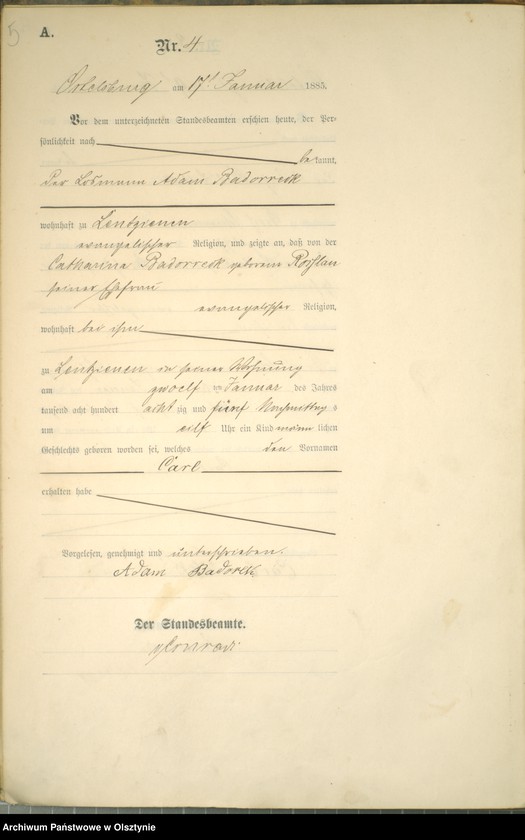 5
A.
Nr. 4
Ortelsburg am 17t Januar 1885.
Vor dem unterzeichneten Standesbeamten erschien heute, der Per-
sönlichkeit nach
be kannt,
der Losmann Adam Badorreck
wohnhaft zu Lentzienen
evangelischer Religion, und zeigte an, daß von der
Catharina Badorreck geborenen
seiner Ehefrau
evangelischer Religion,
wohnhaft bei ihm
zu Lentzienen in seiner Wohnung
am zwoelf ten Januar des Jahres
tausend acht hundert acht zig und fünf Nachmittag s
um eilf Uhr ein Kind männ lichen
Geschlechts geboren worden sei, welches den Vornamen
Carl
erhalten habe
Vorgelesen, genehmigt und unterschrieben.
Adam Badorek
Der Standesbeamte.
Archiwum Państwowe w Olsztynie